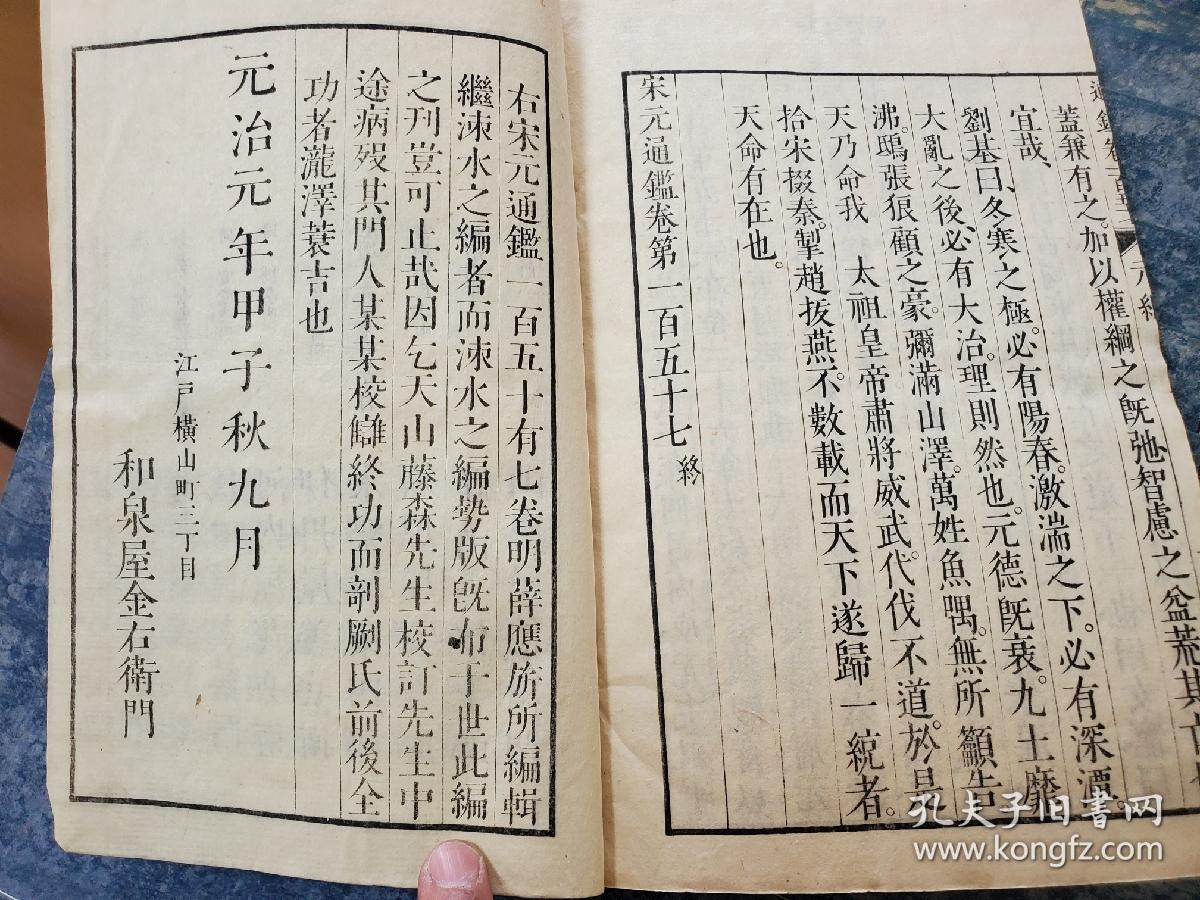 蓋兼有之。加以權綱之旣弛智慮之益荒其亡
宜哉、
劉基曰、冬寒之極。必有陽春。激湍之下。必有深潭。
大亂之後、必有大治。理則然也。元德旣衰。九土麋
沸。鴟張狼顧之豪。彌滿山澤。萬姓魚喁。無所籲告
天乃命我 太祖皇帝肅將威武。代伐不道。於是
拾宋掇秦。掣趙拔燕。不數載而天下遂歸一統者。
天命有在也。
宋元通鑑卷第一百五十七 終
右宋元通鑑一百五十有七卷明薛應旂所編輯
繼涑水之編者而涑水之編勢版旣布于世此編
之刊豈可止哉因乞天山藤森先生校訂先生中
途病歿其門人某某校讎終功而剞劂氏前後全
功者瀧澤蓑吉也
元治元年甲子秋九月
江戸橫山町三丁目
和泉屋金右衛門
孔夫子旧书网
www.kongfz.com